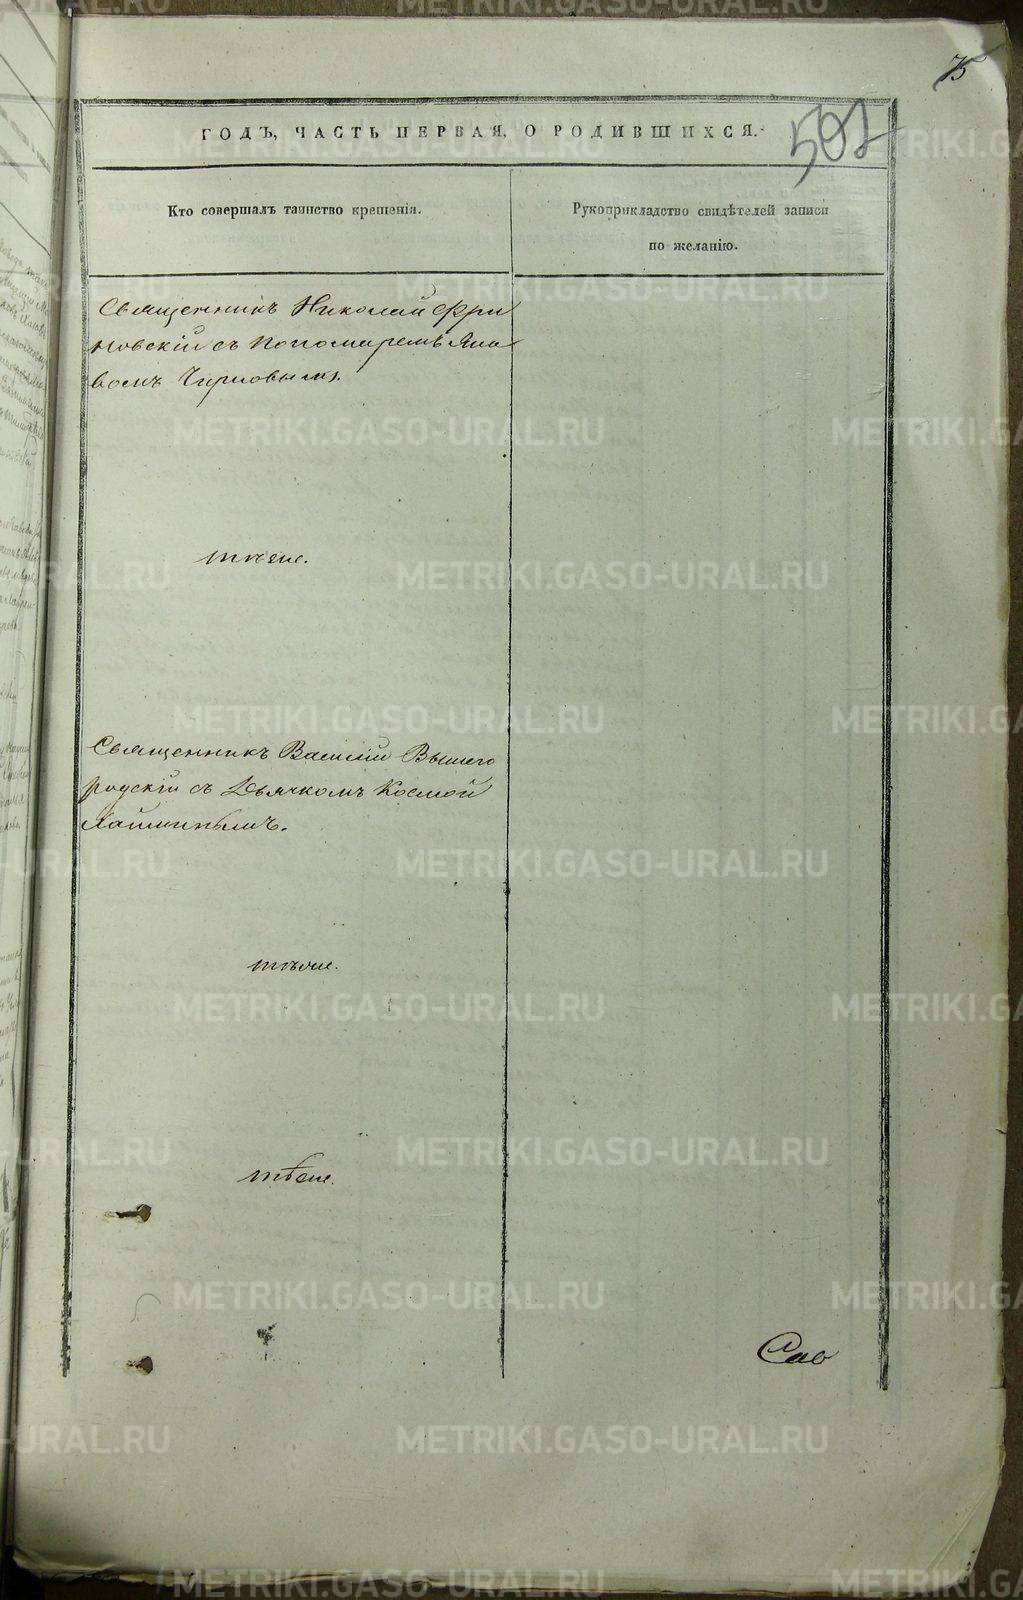 75
502
ГОДЪ, ЧАСТЬ ПЕРВАЯ, О РОДИВШИХСЯ.
Кто совершалъ таинство крещенія.
Рукоприкладство свидѣтелей записи
по желанію.
Священникъ Николай Фри
новскій съ Пономаремъ Яко
вомъ Чирковымъ.
тѣже.
Священникъ Василій Вышего
родскій съ Дьячкомъ Космой
тѣже.
тѣже.
METRIKI.GASO-URAL.RU